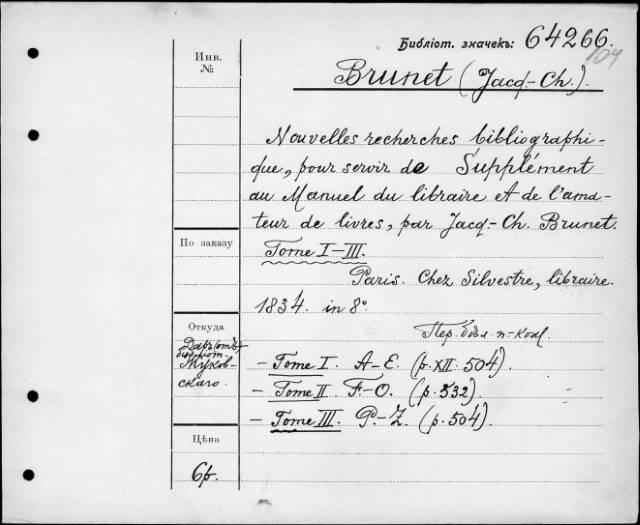 Библіот. значекъ: 64266.
104
Инв.
№
Brunet (Jacq.-Ch.).
Nouvelles recherches bibliographi-
que, pour servir de Supplément
au Manuel du libraire et de l'ama-
teur de livres, par Jacq.-Ch. Brunet.
По заказу
Tome I-III.
Paris. Chez Silvestre, libraire.
1834. in 8º
Откуда
Даръ (отъ)
библіот.
Жуков-
скаго.
Пер. бѣл. п-кож.
- Tome I. A-E. (p. XII. 504).
- Tome II F.-O. (p. 532).
- Tome III. P.-Z. (p. 504).
Цѣна
6р.